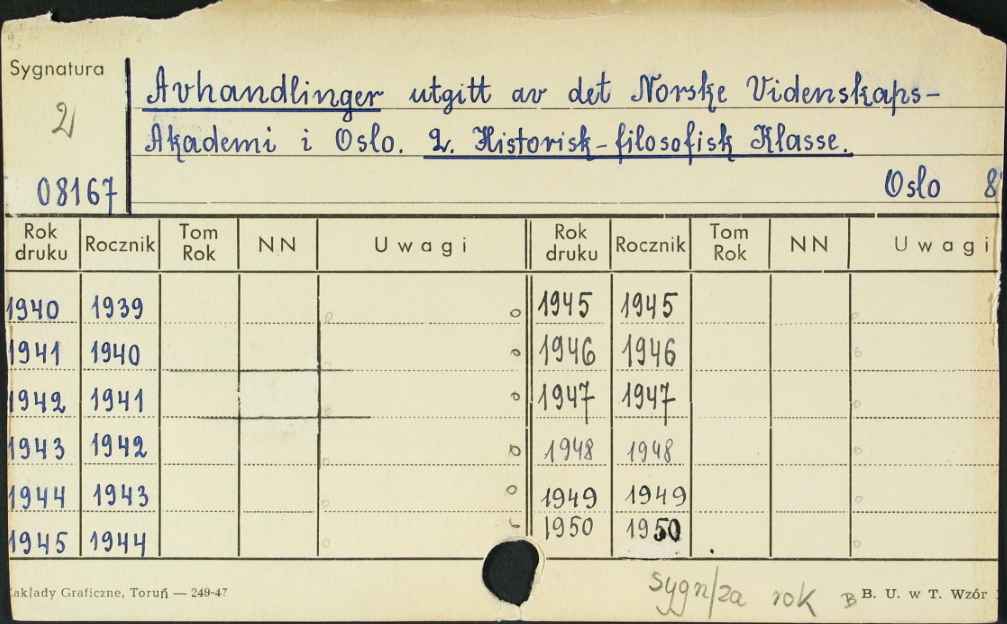 Sygnatura
2
08167
Avhandlinger utgitt av det Norske Videnskaps-
Akademi i Oslo. 2. Historisk-filosofisk Klasse.
Oslo 8°
Rok druku Rocznik Tom Rok NN Uwagi Rok druku Rocznik Tom Rok NN Uwagi
1940 1939 1945 1945
1941 1940 1946 1946
1942 1941 1947 1947
1943 1942 1948 1948
1944 1943 1949 1949
1945 1944 1950 1950
sygn/za rok B
akłady Graficzne, Toruń — 249-47
B. U. w T. Wzór